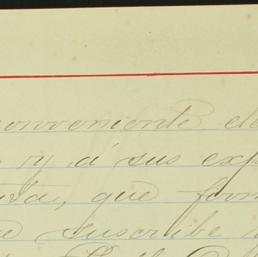 conveniente de
y á sus exp
ta, que form
e suscribe